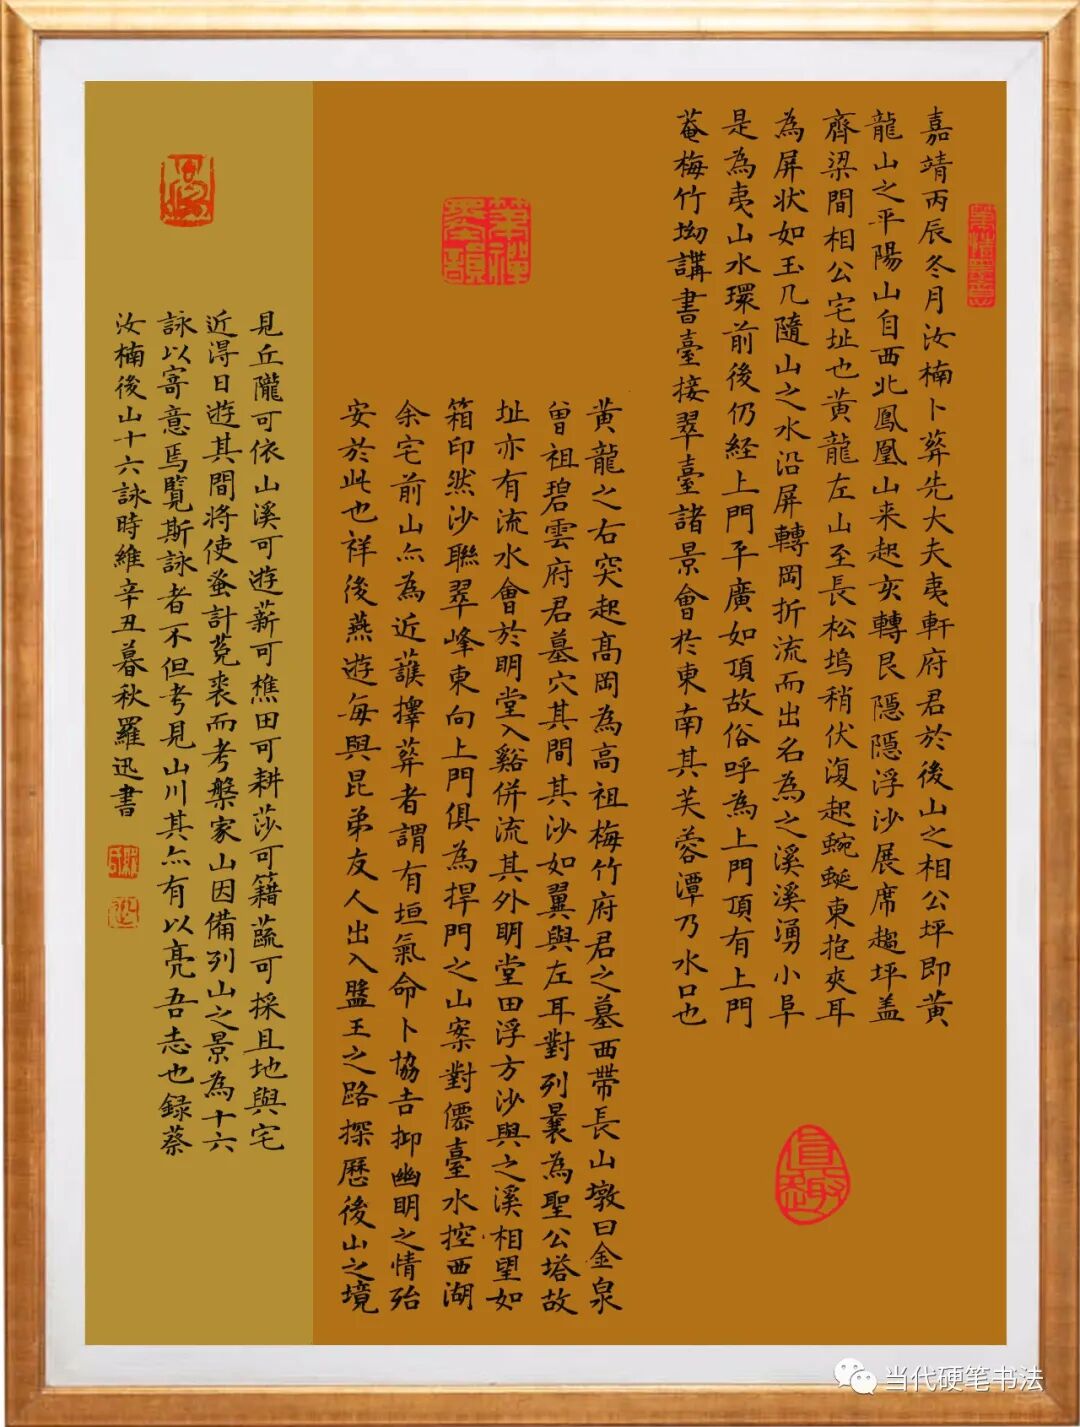 嘉靖丙辰冬月汝楠卜葬先大夫夷軒府君於後山之相公坪即黄
龍山之平陽山自西北鳳凰山来起亥轉艮隱隱浮沙展席趨坪盖
齊梁間相公宅址也黄龍左山至長松塢稍伏復起蜿蜒東抱夾耳
為屏状如玉几隨山之水沿屏轉岡折流而出名為之溪溪湧小阜
是為夷山水環前後仍経上門平廣如頂故俗呼為上門頂有上門
菴梅竹坳講書臺接翠臺諸景會於東南其芙蓉潭乃水口也
黄龍之右突起髙岡為高祖梅竹府君之墓西帶長山墩曰金泉
曾祖碧雲府君墓穴其間其沙如翼與左耳對列曩為聖公塔故
址亦有流水會於明堂入谿併流其外明堂田浮方沙與之溪相望如
箱印然沙聯翠峰東向上門俱為捍門之山案對僊臺水控西湖
余宅前山亦為近護擇葬者謂有垣氣命卜協吉抑幽明之情殆
安於此也祥後燕遊每與昆弟友人出入盬王之路探歷後山之境
見丘隴可依山溪可遊薪可樵田可耕莎可籍蔬可採且地與宅
近得日遊其間将使蚤計菟裘而考槃家山因備列山之景為十六
詠以寄意焉覽斯詠者不但考見山川其亦有以亮吾志也録蔡
汝楠後山十六詠時維辛丑暮秋羅迅書
筆禪墨韻
真趣
当代硬笔书法